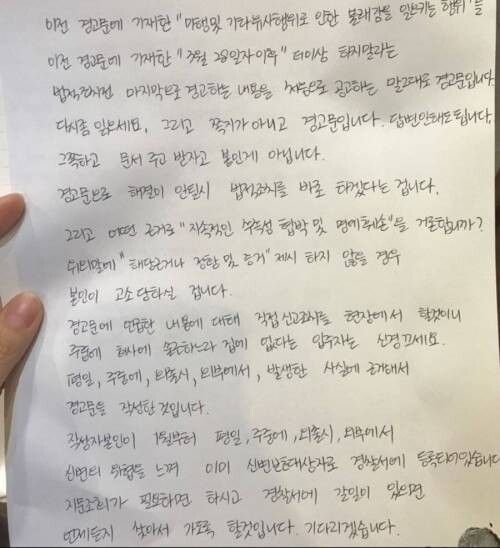 이전 경고문에 기재한 "미행및 기타유사행위로 인한 불쾌감을 일으키는 행위"를
이전 경고문에 기재한 "3월 28일자 이후" 더이상 하지말라는
법적조치전 마지막으로 경고하는 내용을 처음으로 공고하는 말그대로 경고문입니다.
다시좀 읽으세요. 그리고 쪽지가 아니고 경고문입니다. 답변안해도됩니다.
그쪽하고 문서 주고 받자고 붙인게 아닙니다.
경고문으로 해결이 안될시 법적조치를 바로 하겠다는 겁니다.
그리고 어떤 근거로 "지속적인 수속성 협박 및 명예훼손"을 거론합니까?
쉬위말에 "해당근거나 정황 및 증거" 제시 하지 않을 경우
본인이 고소 당하실 겁니다.
경고문에 언급한 내용에 대해 직접 신고조치를 현장에서 할것이니
주중에 회사에 출근하느라 집에 없다는 입주자는 신경끄세요.
평일, 주중에, 외출시, 외부에서, 발생한 사실에 근거해서
경고문을 작성한것입니다.
작성자본인이 1월부터 평일, 주중에, 외출시, 외부에서
신변의 위협을 느껴 이미 신변보호대상자로 경찰서에 등록되어있습니다
지문조회가 필요하면 하시고 경찰서에 갈일이 있으면
언제든지 찾아서 가도록 할것입니다. 기다리겠습니다.